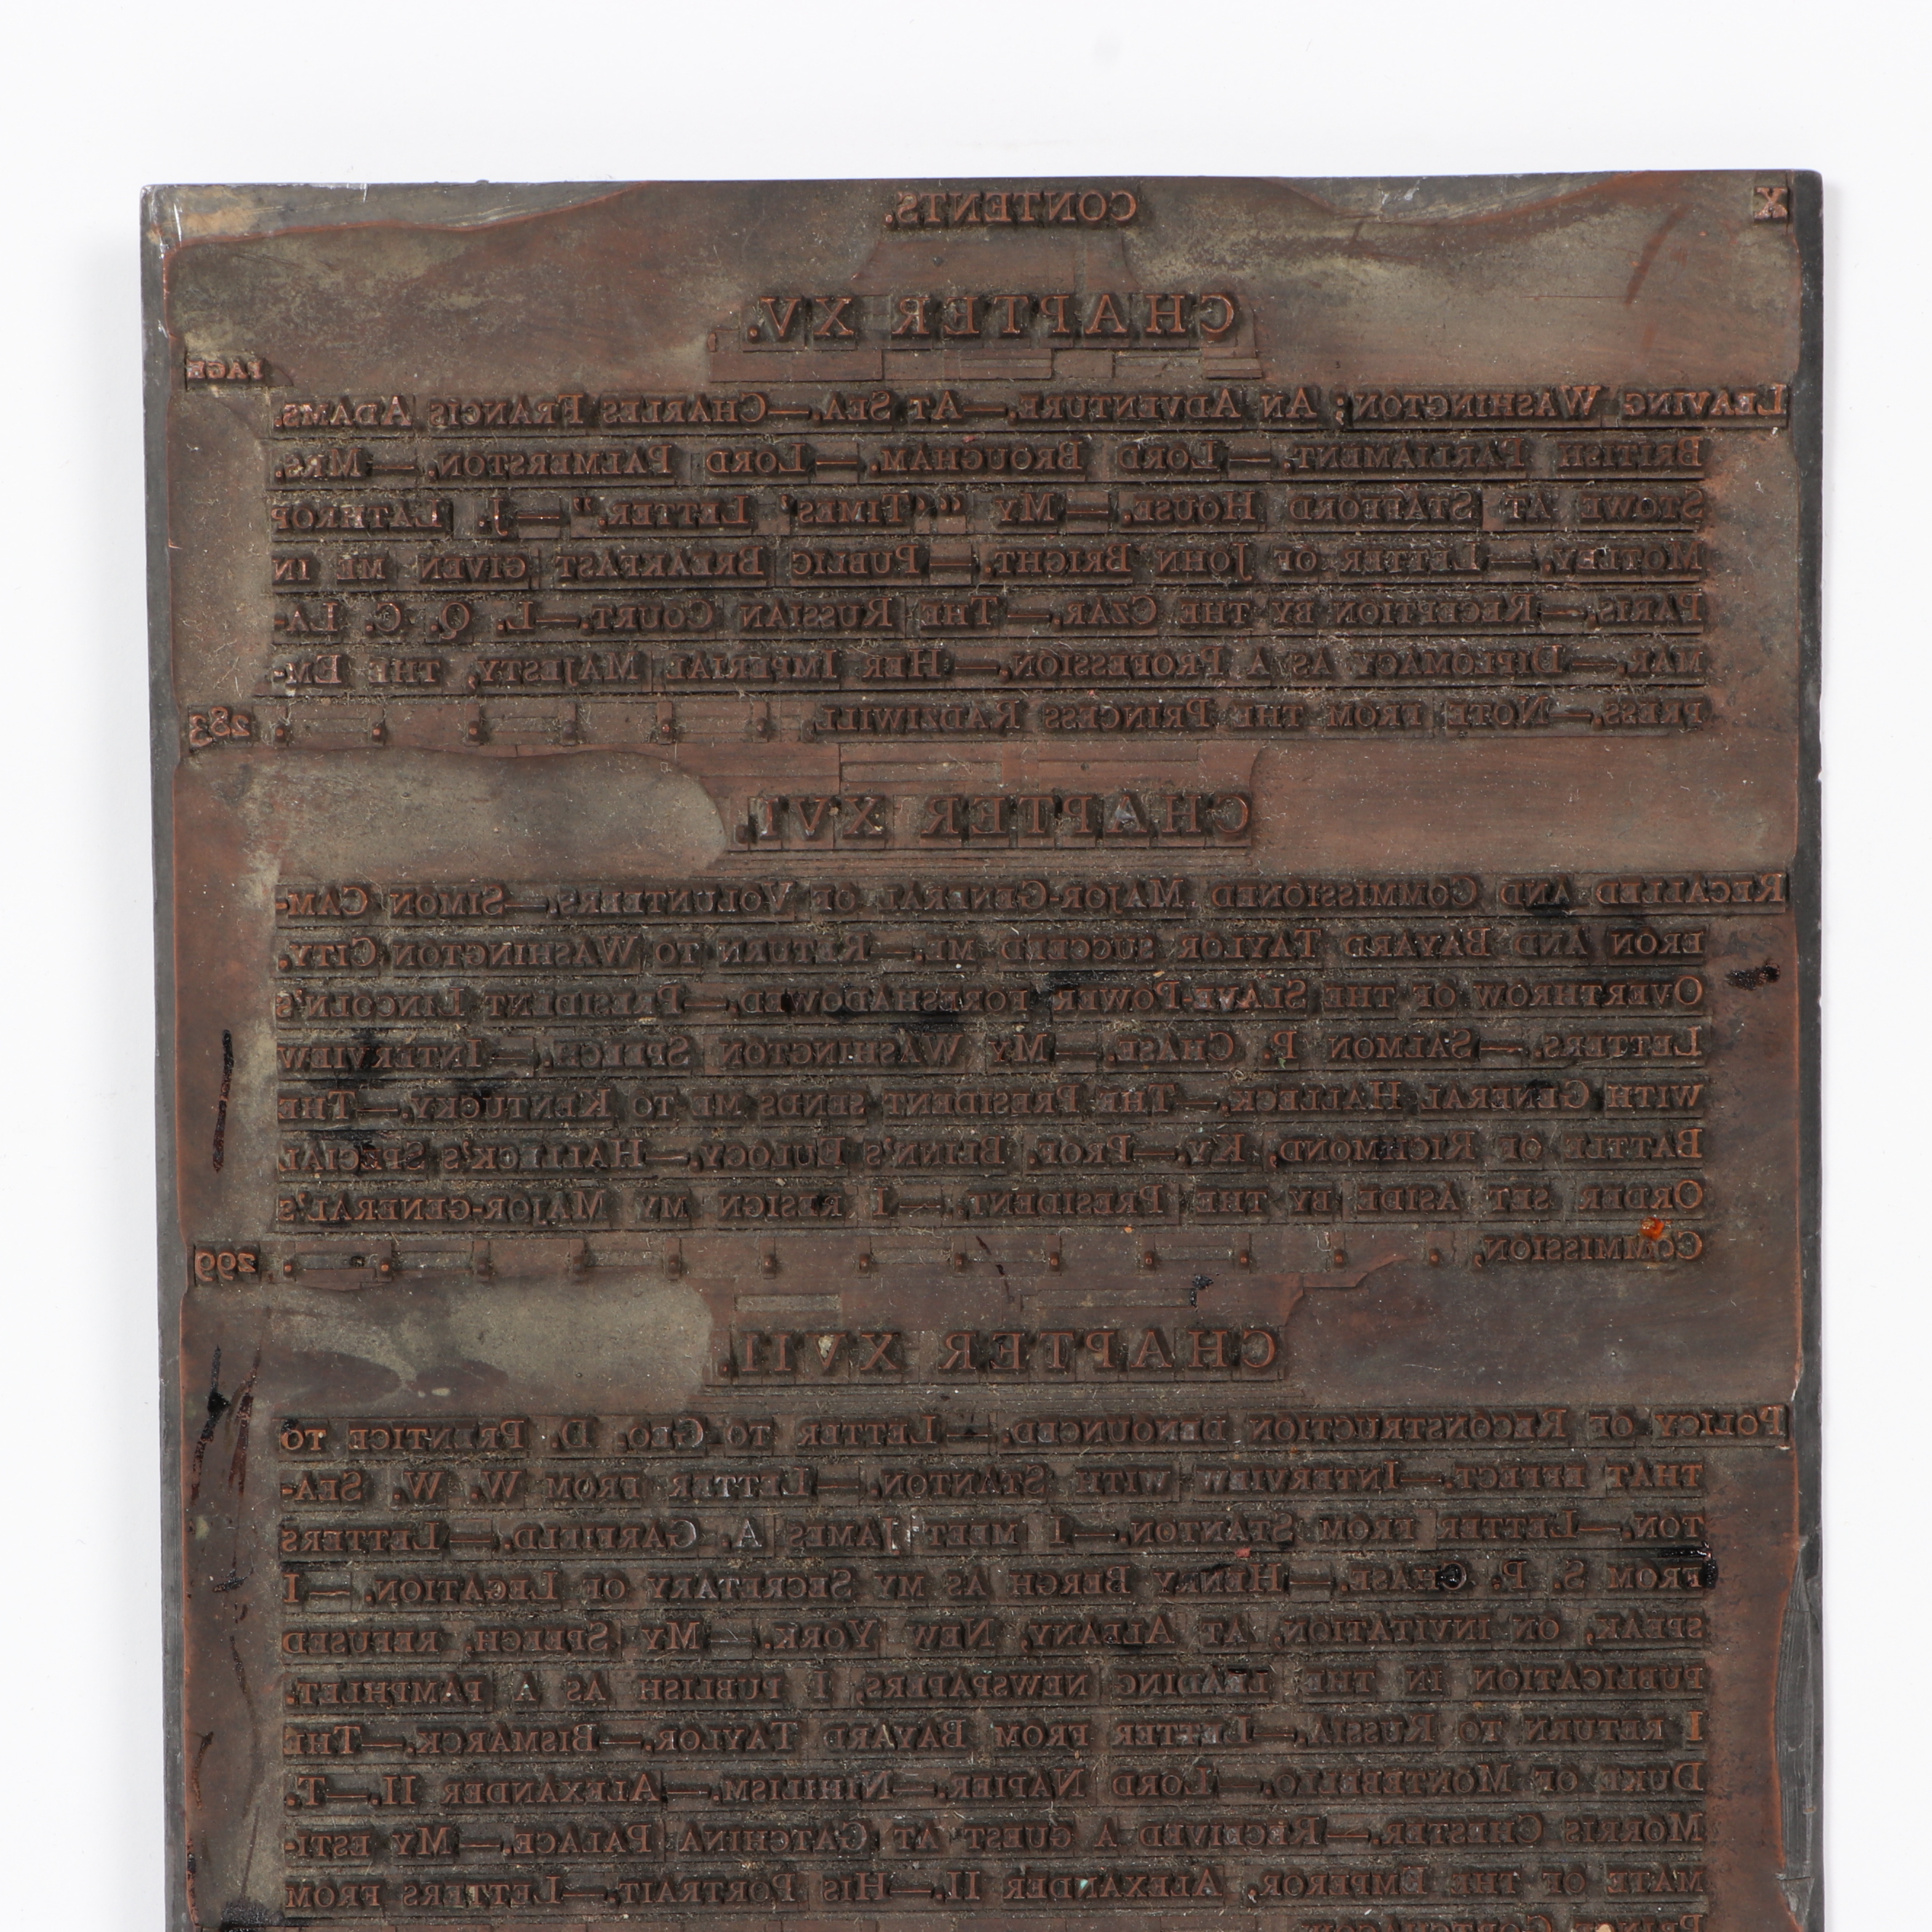 X CONTENTS.
CHAPTER XV.
PAGE
LEAVING WASHINGTON; AN ADVENTURE.—AT SEA.—CHARLES FRANCIS ADAMS.
BRITISH PARLIAMENT.—LORD BROUGHAM.—LORD PALMERSTON.—MRS.
STOWE AT STAFFORD HOUSE.—MY “‘TIMES’ LETTER.”—J. LATHROP
MOTLEY.—LETTER OF JOHN BRIGHT.—PUBLIC BREAKFAST GIVEN ME IN
PARIS.—RECEPTION BY THE CZAR.—THE RUSSIAN COURT.—L. Q. C. LA-
MAR.—DIPLOMACY AS A PROFESSION.—HER IMPERIAL MAJESTY, THE EM-
PRESS.—NOTE FROM THE PRINCESS RADZIWILL . . . . . . 283
CHAPTER XVI.
RECALLED AND COMMISSIONED MAJOR-GENERAL OF VOLUNTEERS.—SIMON CAM-
ERON AND BAYARD TAYLOR SUCCEED ME.—RETURN TO WASHINGTON CITY.
OVERTHROW OF THE SLAVE-POWER FORESHADOWED.—PRESIDENT LINCOLN'S
LETTERS.—SALMON P. CHASE.—MY WASHINGTON SPEECH.—INTERVIEW
WITH GENERAL HALLECK.—THE PRESIDENT SENDS ME TO KENTUCKY.—THE
BATTLE OF RICHMOND, KY.—PROF. BLINN'S EULOGY.—HALLECK'S SPECIAL
ORDER SET ASIDE BY THE PRESIDENT.—I RESIGN MY MAJOR-GENERAL'S
COMMISSION, . . . . . . . . . . . . . 299
CHAPTER XVII.
POLICY OF RECONSTRUCTION DENOUNCED.—LETTER TO GEO. D. PRENTICE TO
THAT EFFECT.—INTERVIEW WITH STANTON.—LETTER FROM W. W. SEA-
TON.—LETTER FROM STANTON.—I MEET JAMES A. GARFIELD.—LETTERS
FROM S. P. CHASE.—HENRY BERGH AS MY SECRETARY OF LEGATION.—I
SPEAK, ON INVITATION, AT ALBANY, NEW YORK.—MY SPEECH, REFUSED
PUBLICATION IN THE LEADING NEWSPAPERS, I PUBLISH AS A PAMPHLET.
I RETURN TO RUSSIA.—LETTER FROM BAYARD TAYLOR.—BISMARCK.—THE
DUKE OF MONTEBELLO.—LORD NAPIER.—NIHILISM.—ALEXANDER II.—T.
MORRIS CHESTER.—RECEIVED A GUEST AT GATCHINA PALACE.—MY ESTI-
MATE OF THE EMPEROR, ALEXANDER II.—HIS PORTRAIT.—LETTERS FROM